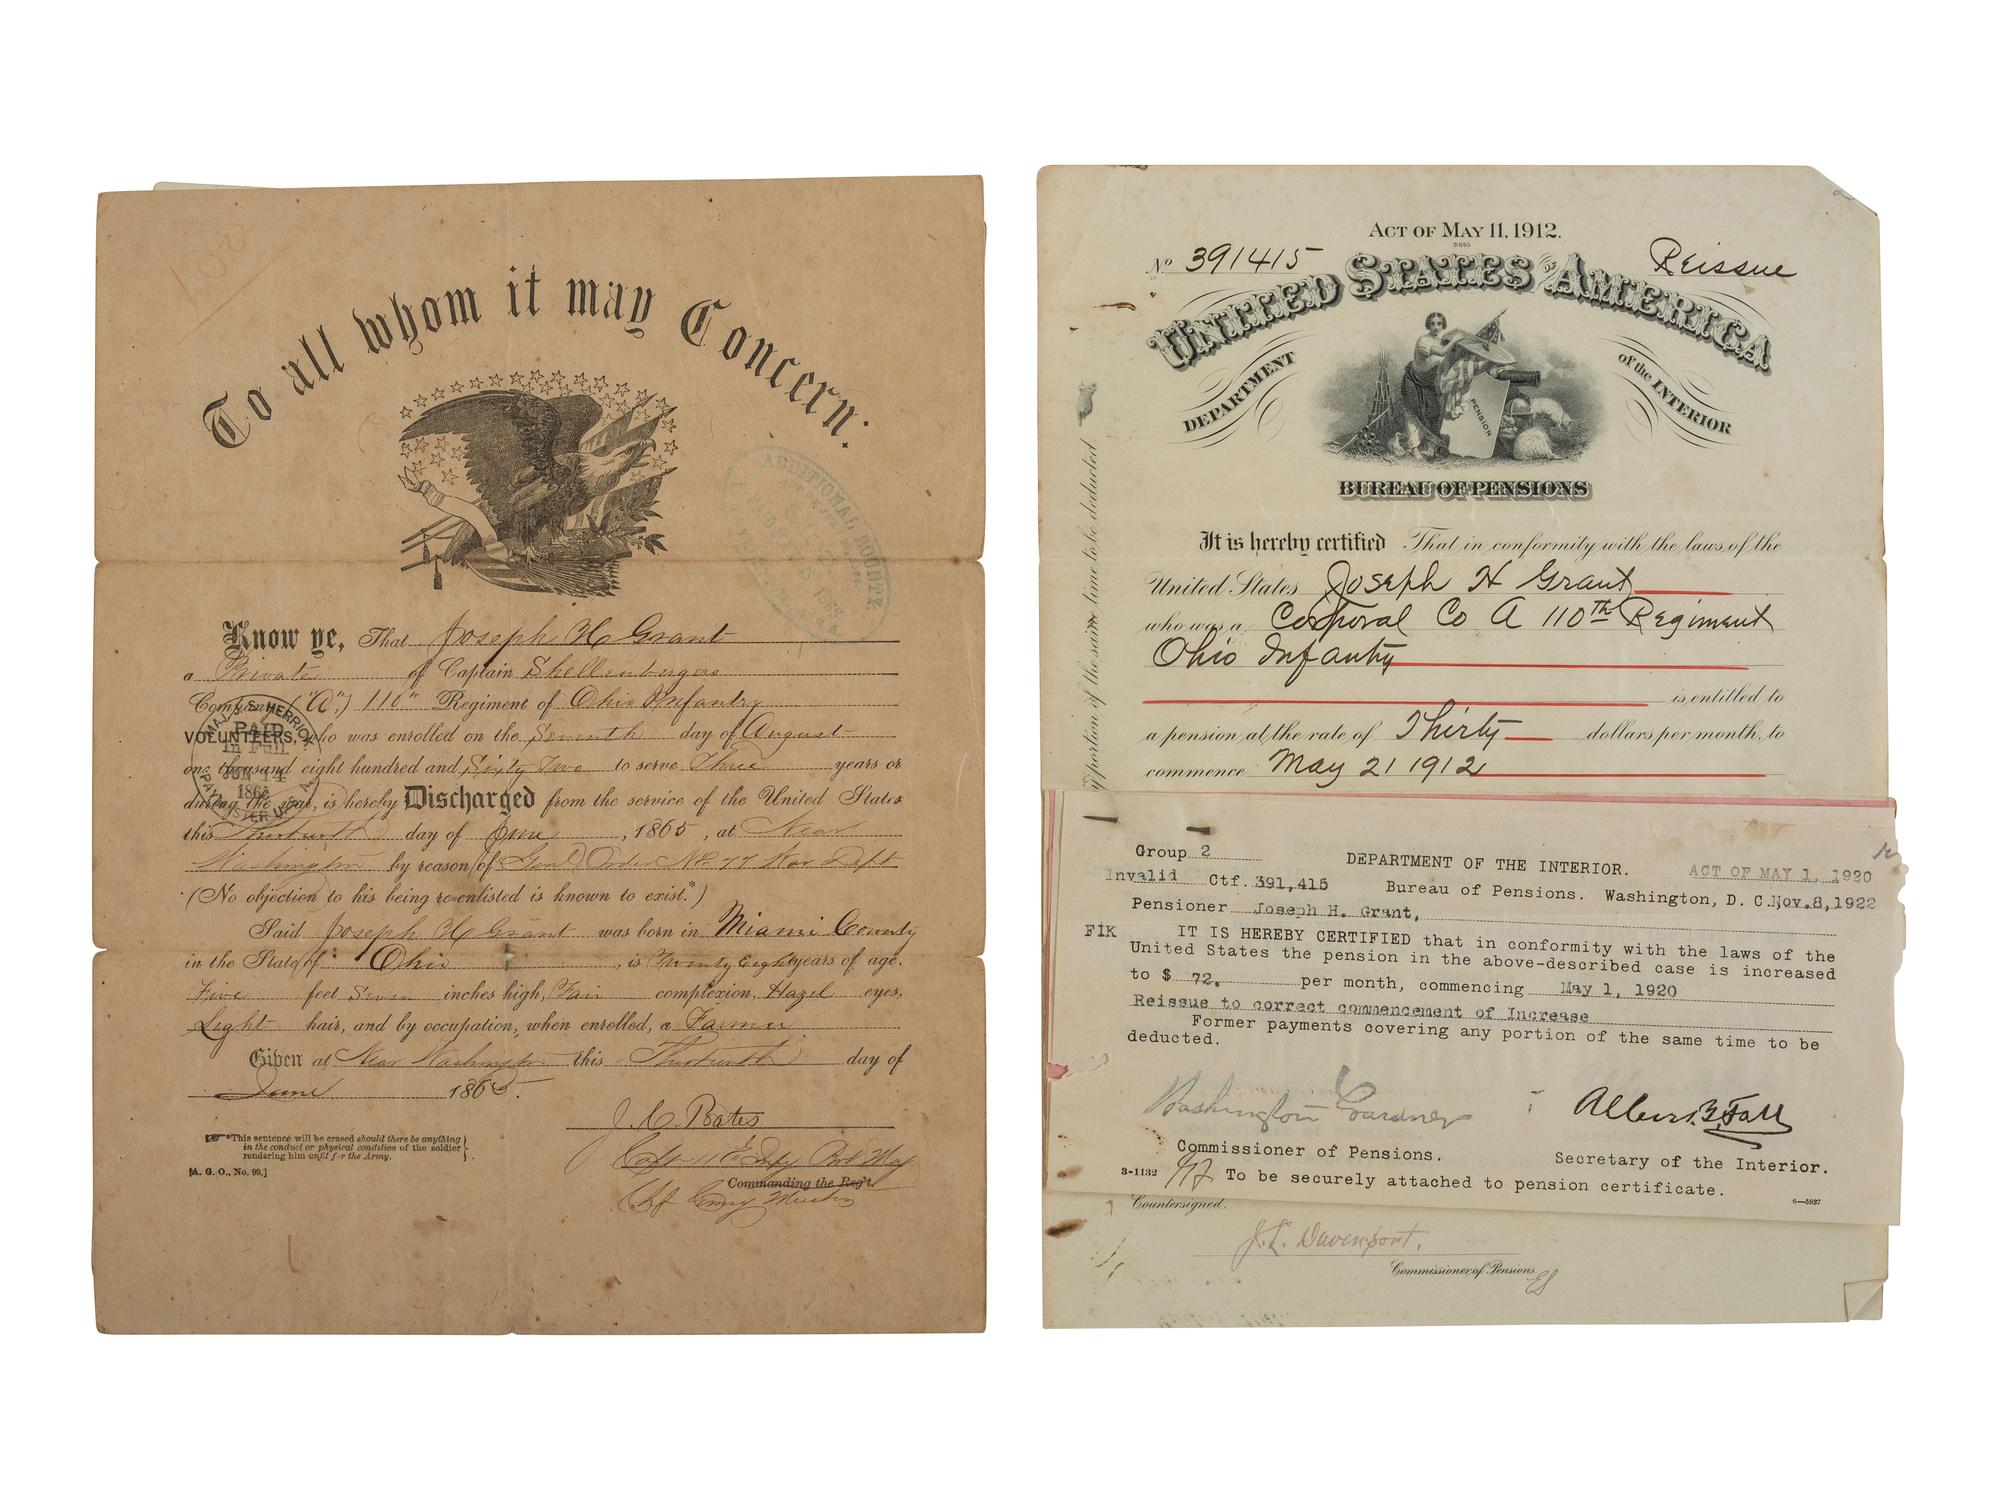 100
To all whom it may Concern:
ADDITIONAL BOUNTY
Know ye, That Joseph H Grant
a Private of Captain Shellenbergers
Company, ("A",) 110" Regiment of Ohio Infantry
VOLUNTEERS, who was enrolled on the Seventh day of August
one thousand eight hundred and Sixty Two to serve Three years or
during the war, is hereby Discharged from the service of the United States
this Thirtieth day of June, 1865, at Near
Washington by reason of Genl Order No. 77 War Dept
(No objection to his being re-enlisted is known to exist.*)
Said Joseph H Grant was born in Miami County
in the State of Ohio, is Twenty Eight years of age,
Five feet Seven inches high, Fair complexion, Hazel eyes,
Light hair, and by occupation, when enrolled, a Farmer
Given at Near Washington this Thirtieth day of
June 1865.
MAJ. S. HERRICK
PAID
In Full
JUN 14
PAYMASTER U.S.A.
J. C. Bates
Capt 11th Infy
Commanding the Reg't.
*This sentence will be erased should there be anything
in the conduct or physical condition of the soldier
rendering him unfit for the Army.
[A. G. O., No. 99.]
ACT OF MAY 11, 1912.
3-695
No 391415
Reissue
UNITED STATES OF AMERICA
DEPARTMENT of the INTERIOR
PENSION
BUREAU OF PENSIONS
It is hereby certified That in conformity with the laws of the
United States Joseph H Grant
who was a Corporal Co A 110th Regiment
Ohio Infantry
is entitled to
a pension at the rate of Thirty dollars per month, to
commence May 21 1912
portion of the same time to be deducted.
Group 2
DEPARTMENT OF THE INTERIOR.
ACT OF MAY 1, 1920
Invalid Ctf. 391,415
Bureau of Pensions. Washington, D. C. Nov. 8, 1922
Pensioner Joseph H. Grant,
FIK
IT IS HEREBY CERTIFIED that in conformity with the laws of the
United States the pension in the above-described case is increased
to $ 72. per month, commencing May 1, 1920
Reissue to correct commencement of Increase
Former payments covering any portion of the same time to be
deducted.
Washington Gardner
Albert B. Fall
Commissioner of Pensions.
Secretary of the Interior.
3-1132
To be securely attached to pension certificate.
6—5937
Countersigned,
J. L. Davenport,
Commissioner of Pensions.